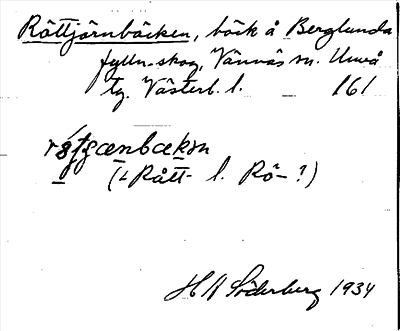 Råttjärnbäcken, bäck å Berglunda
fylln.skog, Vännäs sn. Umeå
tg. Västerb. l. 161
(< Rått- l. Rö- ?)
H A Söderberg 1934